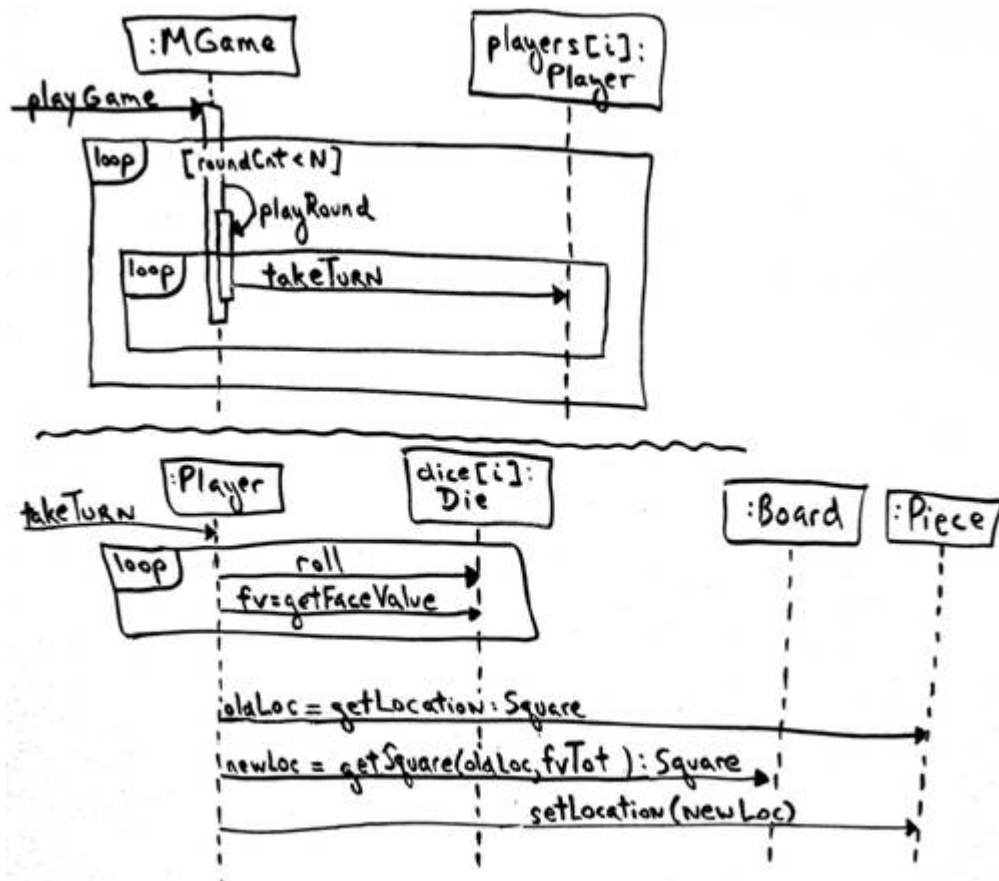 :MGame
players[i]:
Player
playGame
loop
[roundCnt < N]
playRound
loop
takeTurn
:Player
dice[i]:
Die
:Board
:Piece
takeTurn
loop
roll
fv=getFaceValue
oldLoc = getLocation: Square
newLoc = getSquare(oldLoc, fvTot ): Square
setLocation(newLoc)